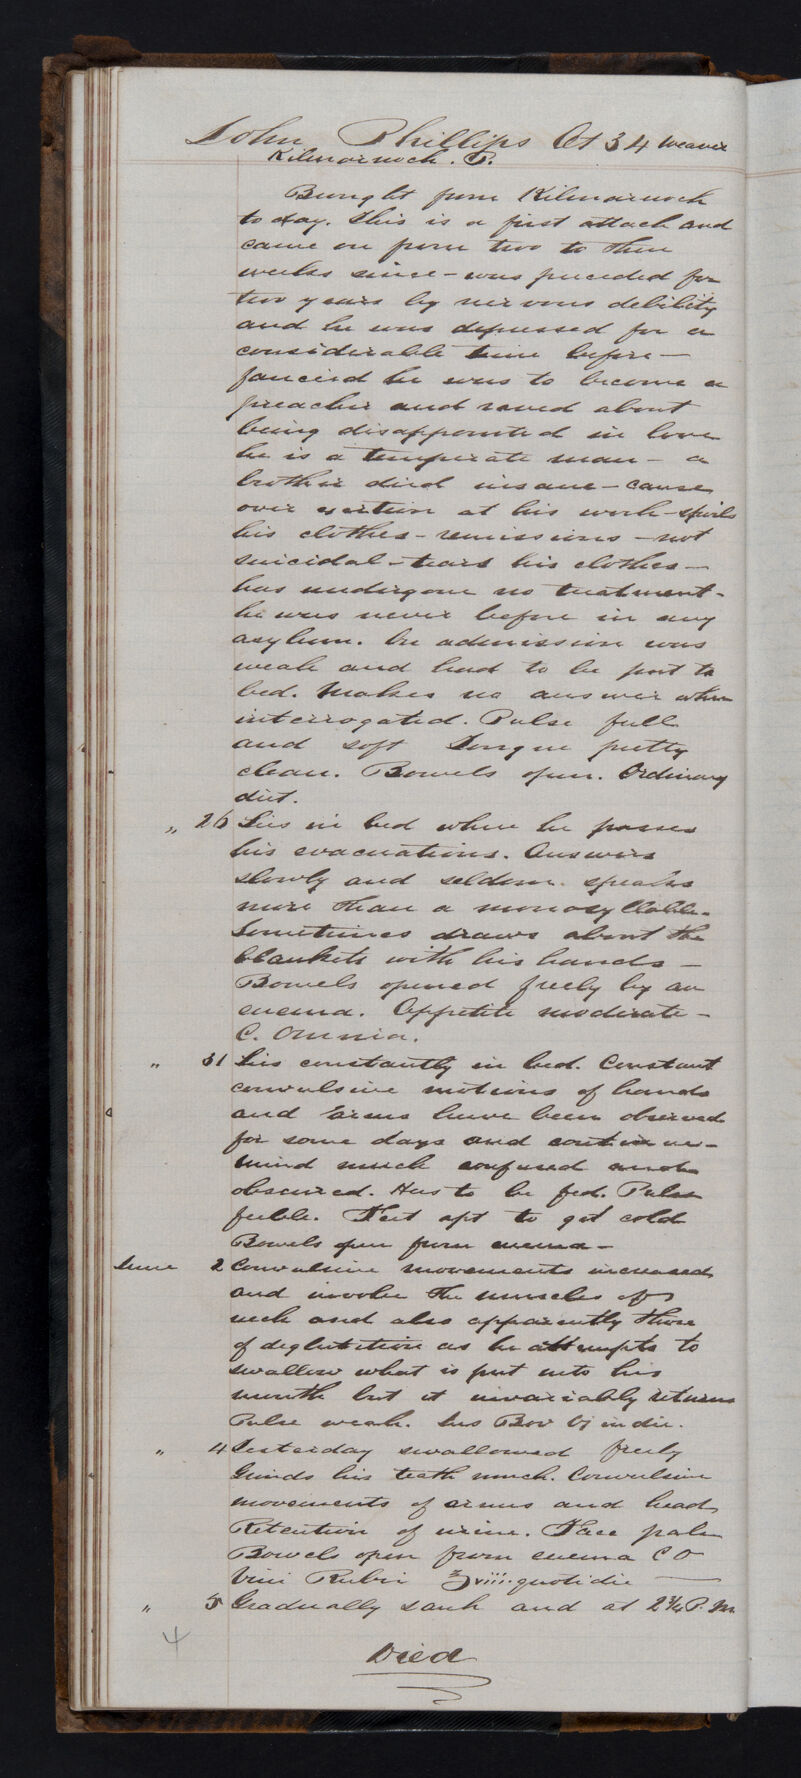 John Phillips Æt 34 weaver
Kilmarnock. P.
Brought from Kilmarnock
to day. This is a first attack and
came on from two to three
weeks since - was preceded for
two years by nervous debility
and he was depressed for a
considerable time before -
fancied he was to become a
preacher and raved about
being disappointed in love
he is a temperate man - a
brother died insane - cause
over exertion at his work - spoils
his clothes - remissions - not
suicidal - tears his clothes -
has undergone no treatment -
he was never before in any
asylum. On admission was
weak and had to be put to
bed. Makes no answer when
interrogated. Pulse full
and soft Tongue pretty
clean. Bowels open. Ordinary
diet.
„ 26 Lies in bed where he passes
his evacuations. Answers
slowly and seldom speaks
more than a monosyllable.
Sometimes draws about the
blankets with his hands -
Bowels opened freely by an
enema. Appetite moderate -
C. Omnia.
„ 31 Lies constantly in bed. Constant
convulsive motions of hands
and arms have been observed
for some days and continue -
mind much confused and
obscured. Has to be fed. Pulse
feeble. Feet apt to get cold
Bowels open from enema -
June 2 Convulsive movements increased
and involve the muscles of
neck and also apparently those
of deglutition as he attempts to
swallow what is put into his
mouth but it invariably returns
Pulse weak. Jus Bov in die.
„ 4 Yesterday swallowed freely
Grinds his teeth much. Convulsive
movements of arms and head
Retention of urine. Face pale
Bowels open from enema C O
Vini Rubri ℥viii. quotidie
„ 5 Gradually sank and at 2¾ P.M.
4
Died